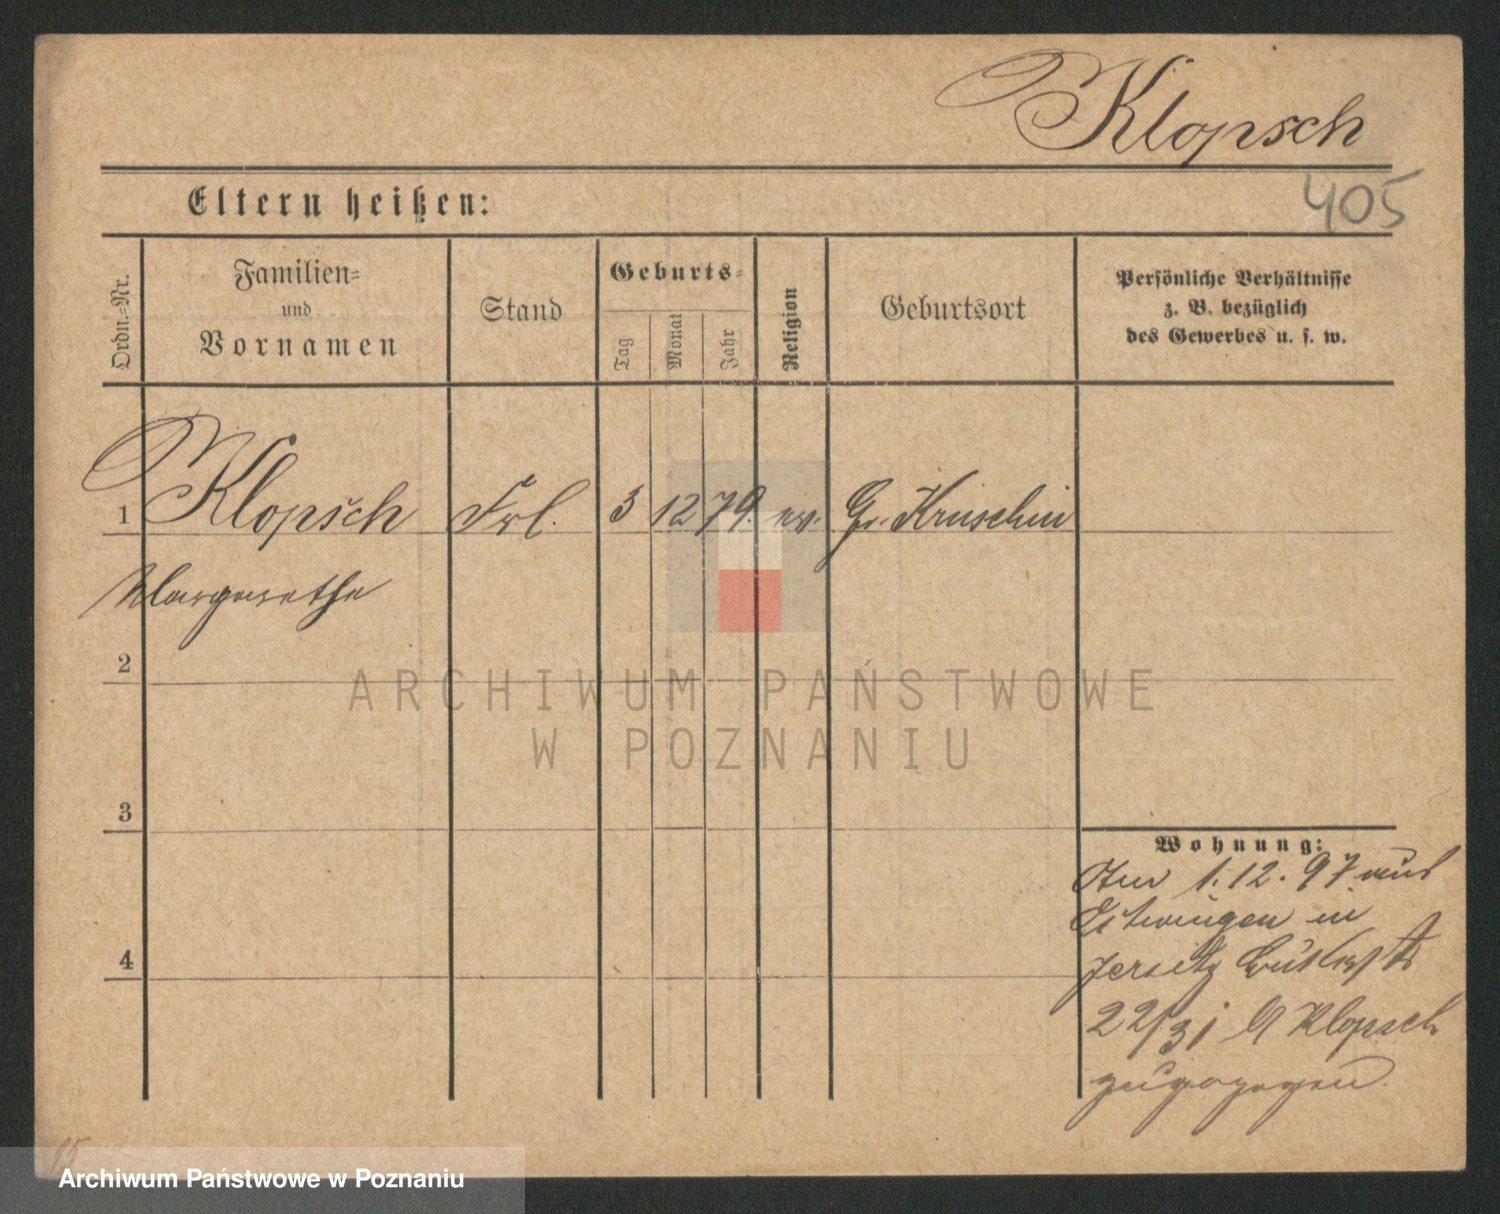 Klopsch
405
Eltern heißen:
Ordn.-Nr.
Familien-
und
Vornamen
Stand
Geburts-
Tag
Monat
Jahr
Religion
Geburtsort
Persönliche Verhältnisse
z. B. bezüglich
des Gewerbes u. s. w.
1 Klopsch Frl. 3 12 79. ev. Gr. Kruschin
Margarethe
2
ARCHIWUM PAŃSTWOWE
W POZNANIU
3
4
Wohnung:
Am 1. 12. 97 aus
in
Jersitz
22/31 b/ Klopsch
zugezogen.
15
Archiwum Państwowe w Poznaniu